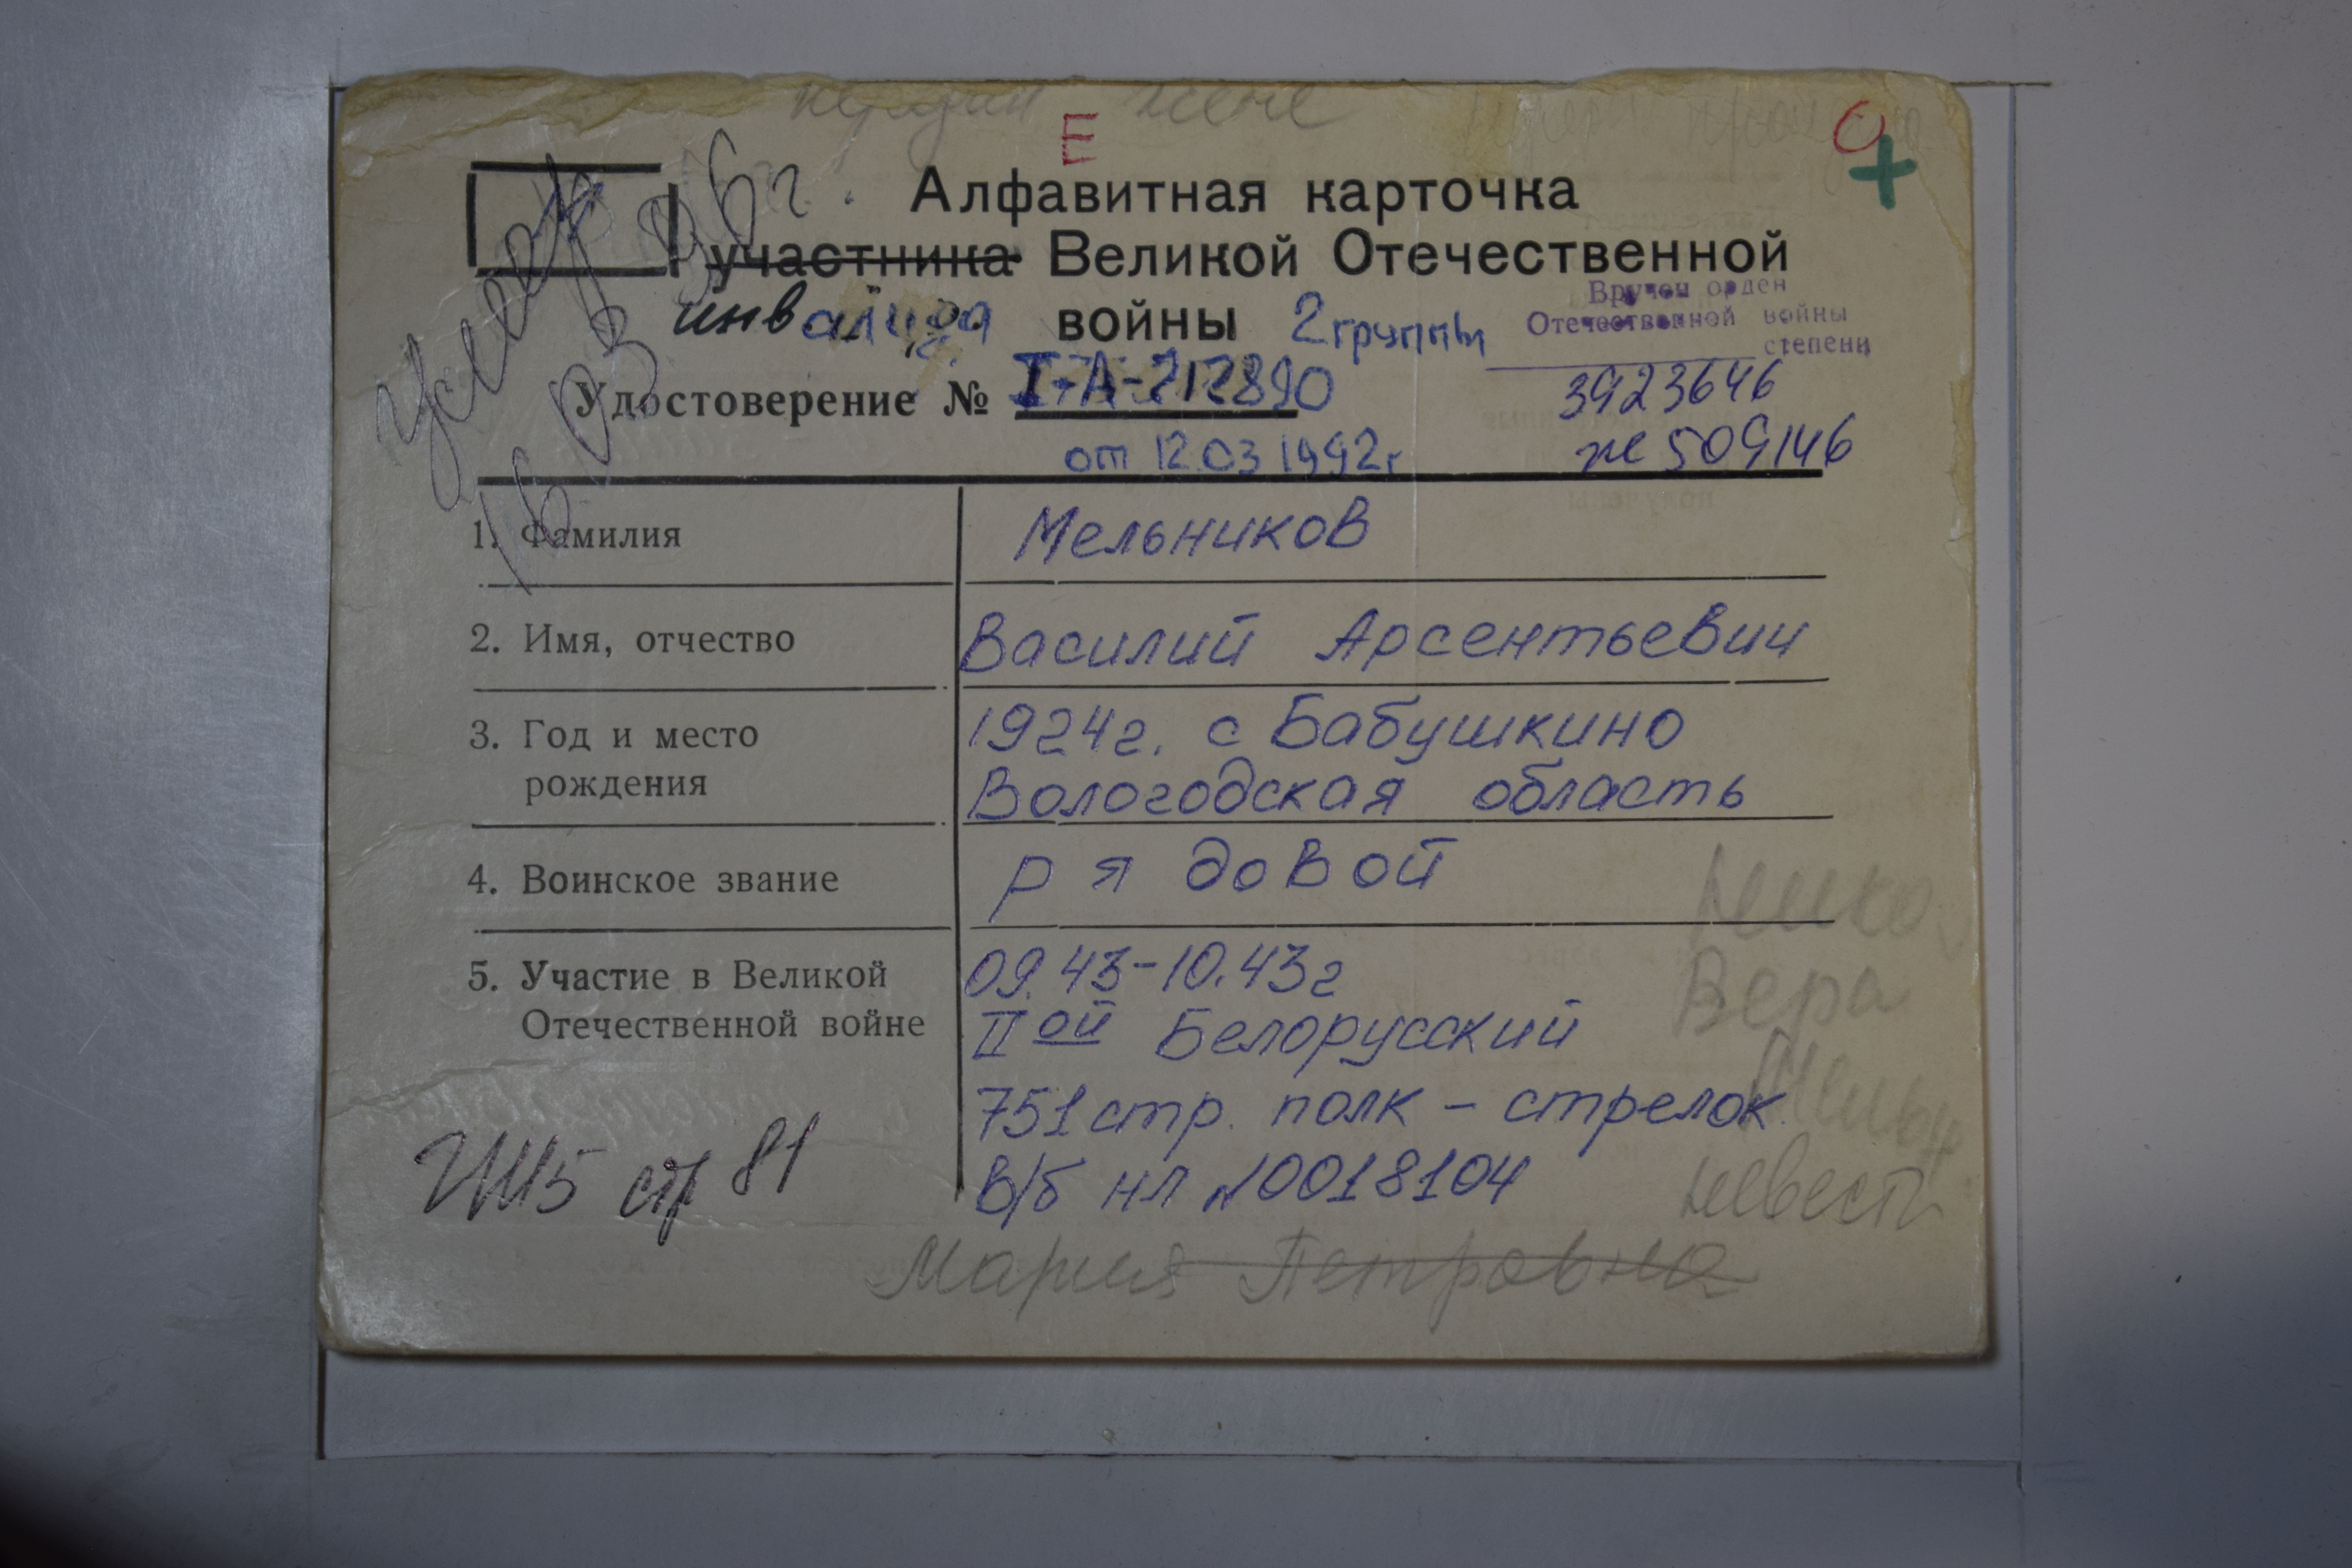 Е
Алфавитная карточка
участника Великой Отечественной
инвалида войны 2 группы
Вручен орден
Отечественной войны
степени
Удостоверение № I-А-212890
3923646
от 12.03 1992г
же 509146
умер
16.03 96г.
1. Фамилия Мельников
2. Имя, отчество Василий Арсентьевич
3. Год и место 1924г. с Бабушкино
рождения Вологодская область
4. Воинское звание рядовой
5. Участие в Великой 09.43-10.43г
Отечественной войне IIой Белорусский
751 стр. полк - стрелок.
В/б нл №0018104
стр 81
Вера
Мария Петровна